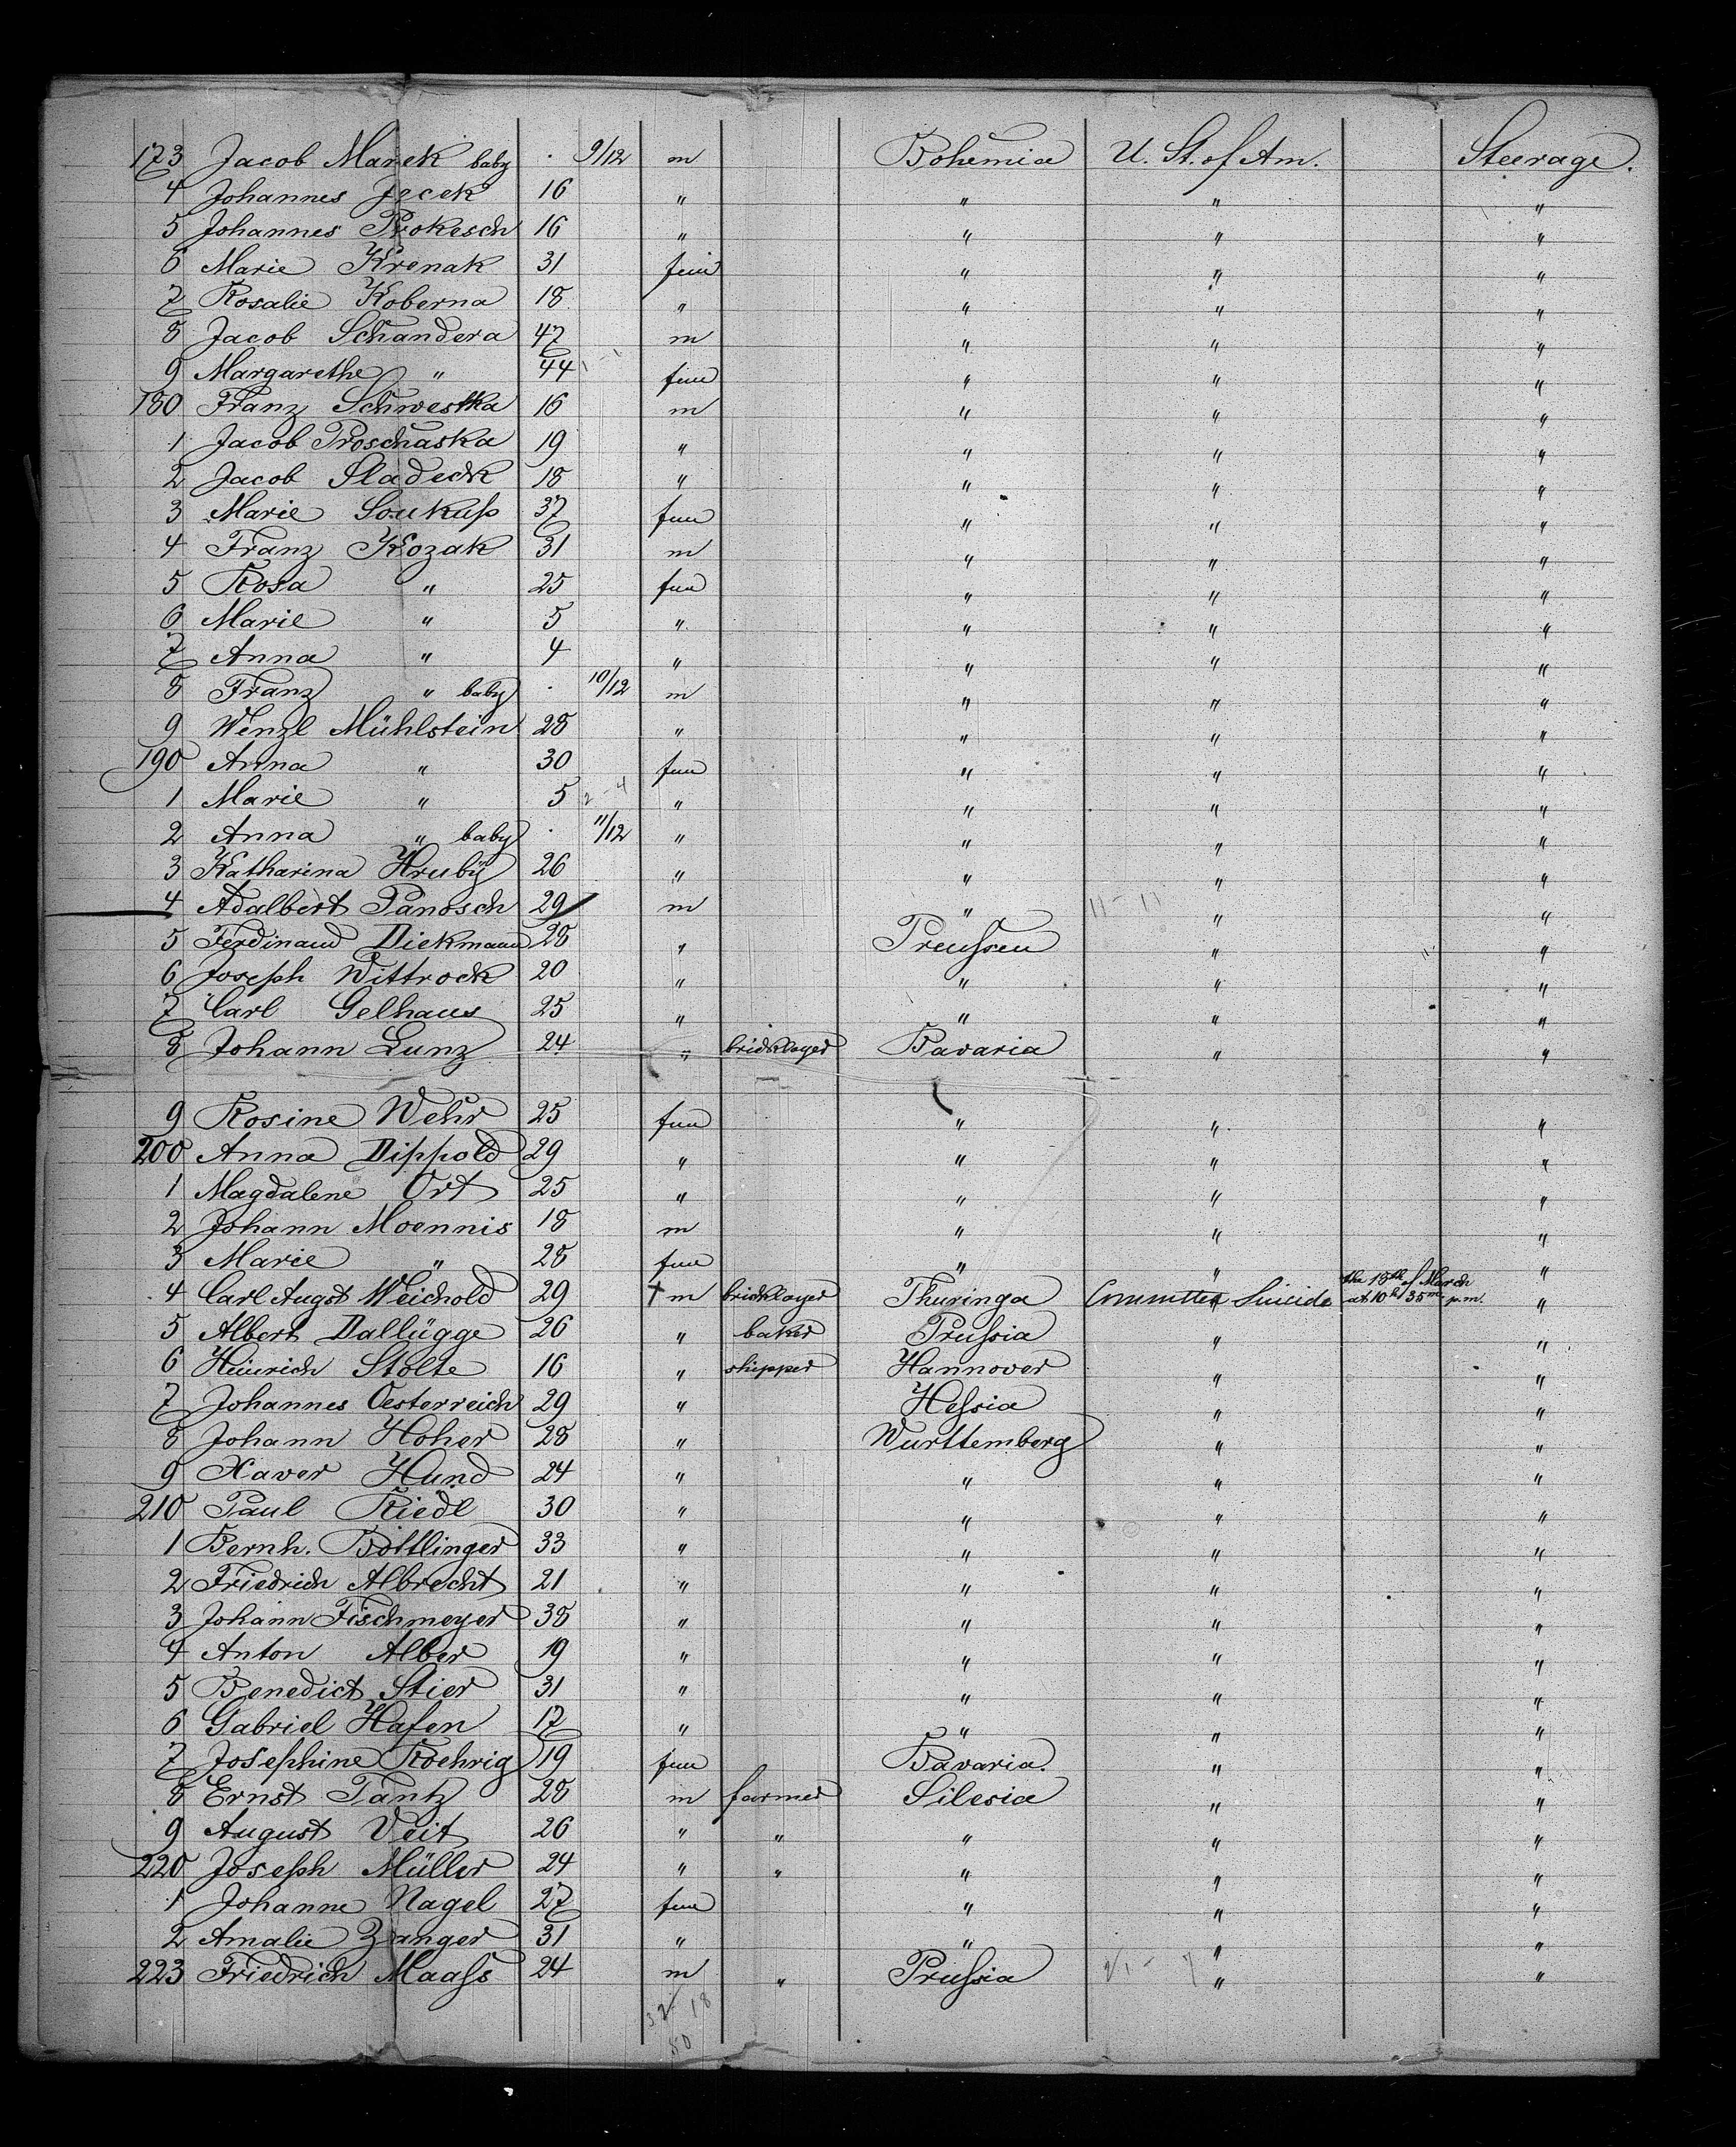 173 Jacob Marek baby · 9/12 m Bohemia U. St. of Am. Steerage.
4 Johannes Jecek 16 " " " "
5 Johannes Prokesch 16 " " " "
6 Marie Krenak 31 fem " " "
7 Rosalie Koberna 18 " " " "
8 Jacob Schandera 47 m " " "
9 Margarethe " 44 fem " " "
180 Franz Schwestka 16 m " " "
1 Jacob Proschaska 19 " " " "
2 Jacob Sladeck 18 " " " "
3 Marie Soukuſs 37 fem " " "
4 Franz Kozak 31 m " " "
5 Rosa " 25 fem " " "
6 Marie " 5 " " " "
7 Anna " 4 " " " "
8 Franz " baby · 10/12 m " " "
9 Wenzl Mühlstein 28 " " " "
190 Anna " 30 fem " " "
1 Marie " 5 2-4 " " " "
2 Anna " baby · 11/12 " " " "
3 Katharina Hruby 26 " " " "
4 Adalbert Panosch 29 m " 11-11 " "
5 Ferdinand Diekmann 28 " Preuſsen " "
6 Joseph Wittrock 20 " " " "
7 Carl Gelhaus 25 " " " "
8 Johann Lunz 24 " bricklayer Bavaria " "
9 Rosine Wehr 25 fem " " "
200 Anna Dippold 29 " " " "
1 Magdalene Ort 25 " " " "
2 Johann Moennis 18 m " " "
3 Marie " 28 fem " " "
4 Carl Augst Weichold 29 † m bricklayer Thuringa " Committed Suicide the 18th of March at 10h 35m p.m. "
5 Albert Dallügge 26 " baker Pruſsia " "
6 Heinrich Stolte 16 " shipper Hannover " "
7 Johannes Oesterreich 29 " Heſsia " "
8 Johann Hoher 28 " Wurttemberg " "
9 Xaver Hund 24 " " " "
210 Paul Riedl 30 " " " "
1 Bernh. Böttlinger 33 " " " "
2 Friedrich Albrecht 21 " " " "
3 Johann Fischmeyer 38 " " " "
4 Anton Alber 19 " " " "
5 Benedict Stier 31 " " " "
6 Gabriel Hafen 17 " " " "
7 Josephine Roehrig 19 fem Bavaria. " "
8 Ernst Tantz 28 m farmer Silesia " "
9 August Veit 26 " " " " "
220 Joseph Müller 24 " " " " "
1 Johanne Nagel 27 fem " " "
2 Amalie Zanger 31 " " " "
223 Friedrich Maaſs 24 m " Pruſsia " "
32 18
50